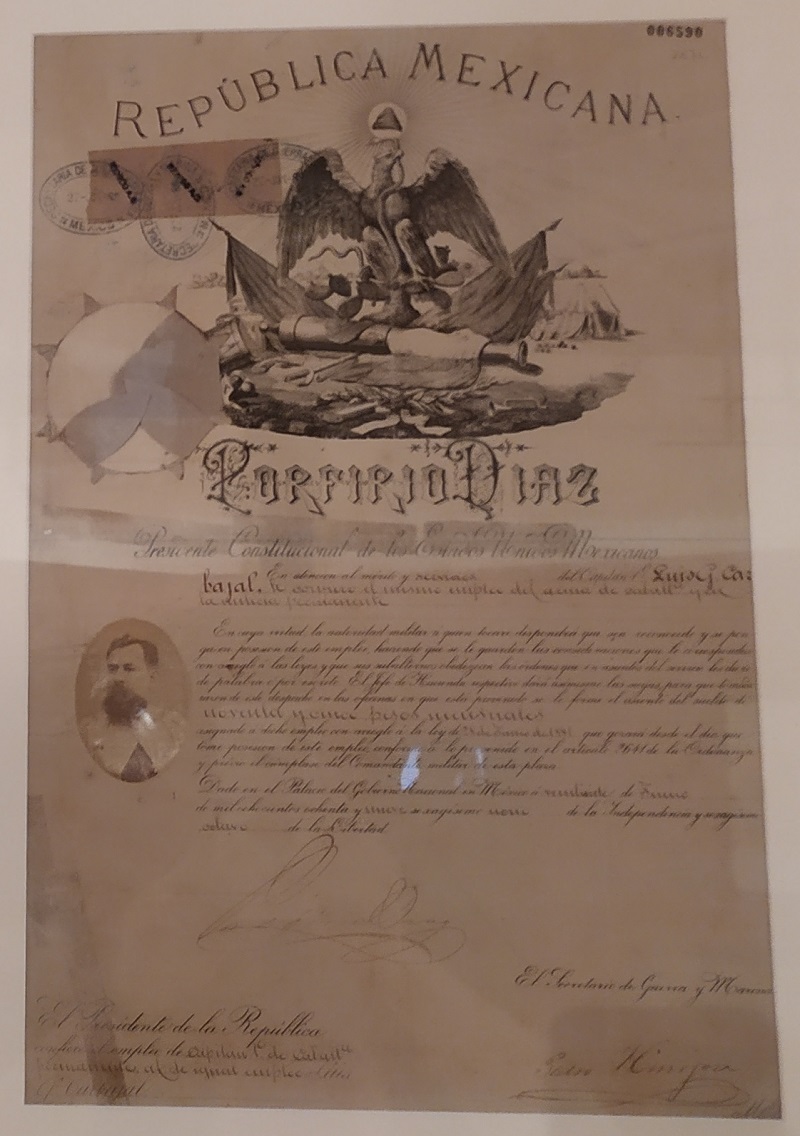 006590
REPÚBLICA MEXICANA.
PORFIRIO DIAZ
Presidente Constitucional de los Estados Unidos Mexicanos
En atencion al mérito y del Capitán 1º Luis G. Car
bajal, le confiere el mismo empleo del arma de caball.ª y en
la milicia permanente
En cuya virtud, la autoridad militar a quien tocare dispondrá que sea reconocido y se pon
ga en posesion de este empleo, haciendo que se le guarden las consideraciones que le corresponden
con arreglo á las leyes y que sus subalternos obedezcan las órdenes que en asuntos del servicio les diere
de palabra o por escrito. El Jefe de Hacienda respectivo dará para que tomada
razon de este despacho en las oficinas en que esté prevenido se le forme el asiento del sueldo de
noventa y cinco pesos mensuales
asignado a dicho empleo con arreglo á la ley de de Junio de que gozará desde el dia que
tome posesion de este empleo, conforme á lo prevenido en el artículo de la Ordenanza
y prévio el cúmplase del Comandante militar de esta plaza.
Dado en el Palacio del Gobierno Nacional en México á de Junio
de mil ochocientos ochenta y nueve sexagésimo nono de la Independencia y sexagésimo
octavo de la Libertad.
El Secretario de Guerra y Marina
El Presidente de la República
confiere el empleo de Capitan 1º de Caball.ª
permanente al de igual empleo Luis
G. Carbajal
Pedro Hinojosa